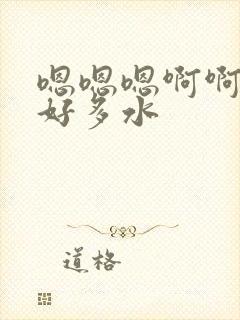 嗯嗯嗯啊啊
好多水
道格